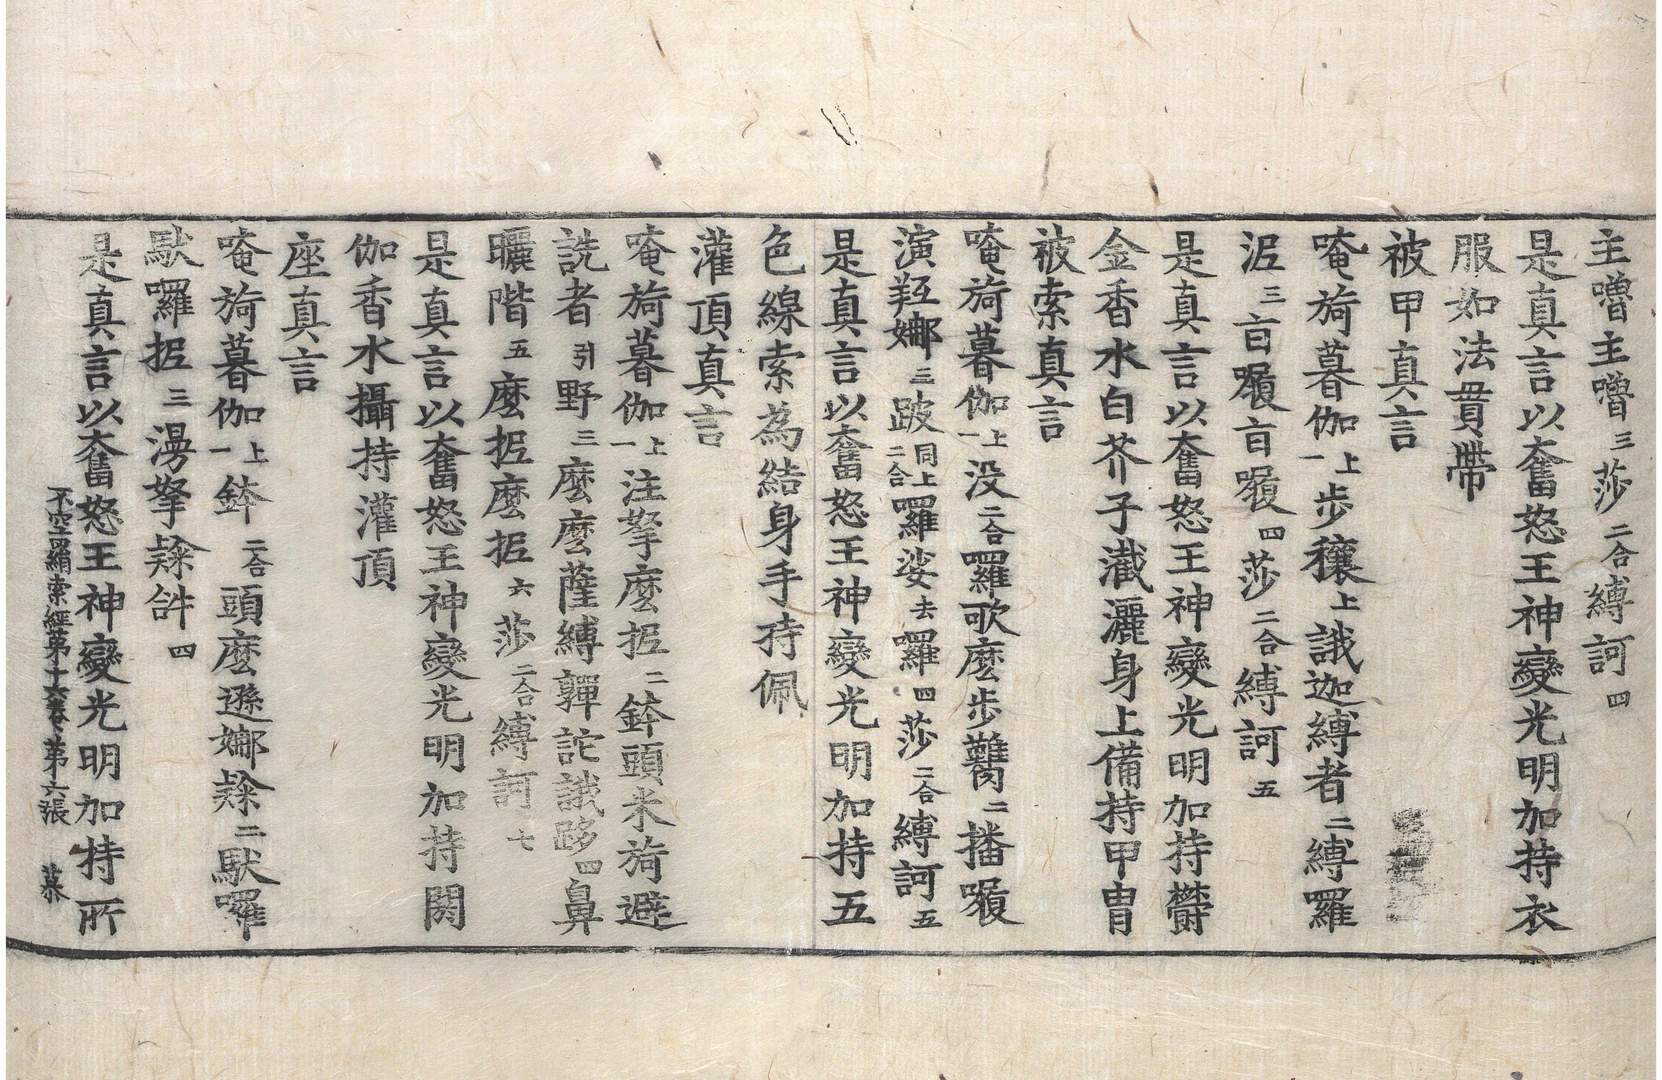 主嚕主嚕三莎二合縛訶四
是真言以奮怒王神變光明加持衣
服如法貫帶
被甲真言
唵旖暮伽上一步穰上誐迦縛者二縛羅
泥三亩㘑亩㘑四莎二合縛訶五
是真言以奮怒王神變光明加持欝
金香水白芥子灑灑身上備持甲冑
被索真言
唵旖暮伽上一没二合羅歌麼步二播㘑
演娜三跛同上二合羅娑去囉四莎二合縛訶五
是真言以奮怒王神變光明加持五
色線索為結身手持佩
灌頂真言
唵旖暮伽上一注拏麼抳二鉢頭米旖避
詵者引野三麼麼薩縛嚲詑誐跢四鼻
曬階五麼抳麼抳六莎二合縛訶七
是真言以奮怒王神變光明加持閼
伽香水攝持灌頂
座真言
唵旖暮伽上一鉢二合頭麼遜娜㘕二馱囉
馱囉抳三漫拏㘕𤙖四
是真言以奮怒王神變光明加持所
不空羂索經第十六卷 第六張 慕